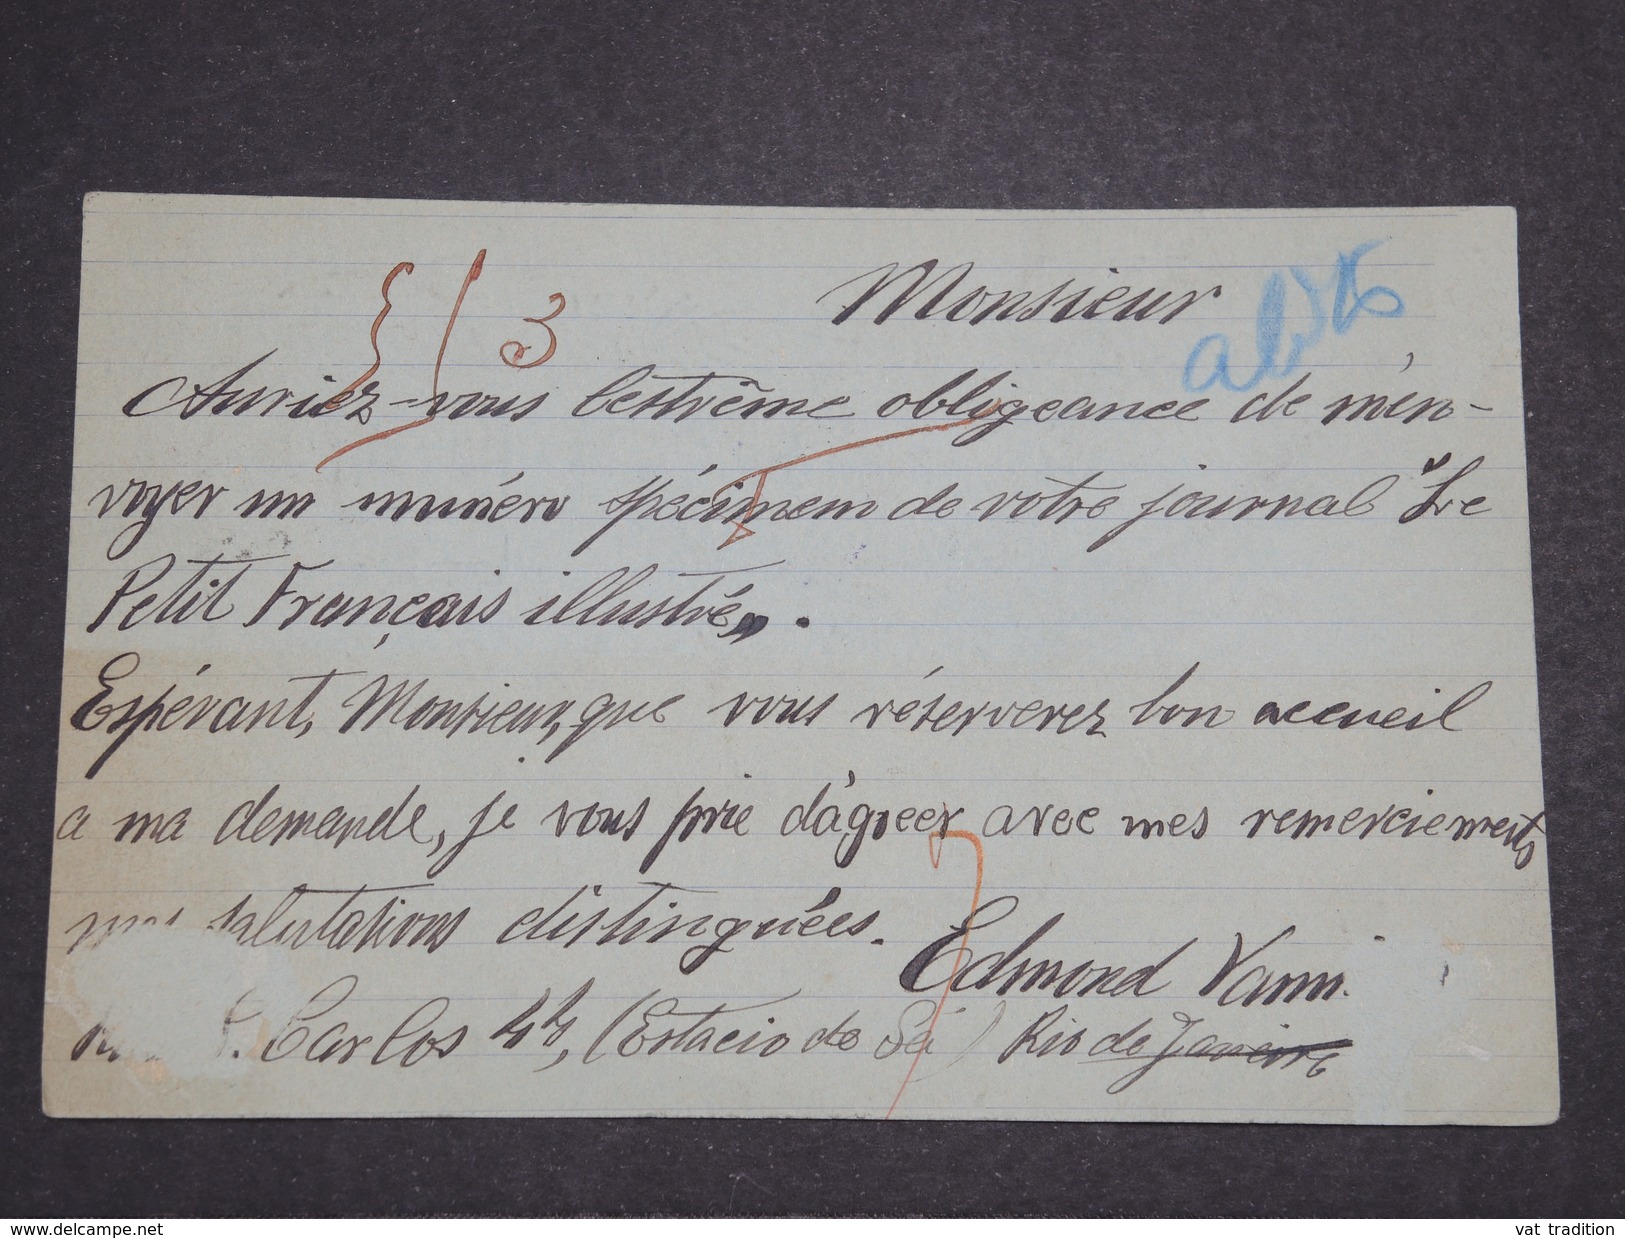 Monsieur
Auriez-vous l'extrême obligeance de m'en-
voyer un numéro spécimem de votre journal "Le
Petit Français illustré„.
Espérant, Monsieur, que vous réserverez bon accueil
a ma demande, je vous prie d'agréer avec mes remerciements
mes salutations distinguées.
Edmond Vanni
Carlos 44, (Estacio de Sá) Rio de Janeiro
www.delcampe.net
vat tradition